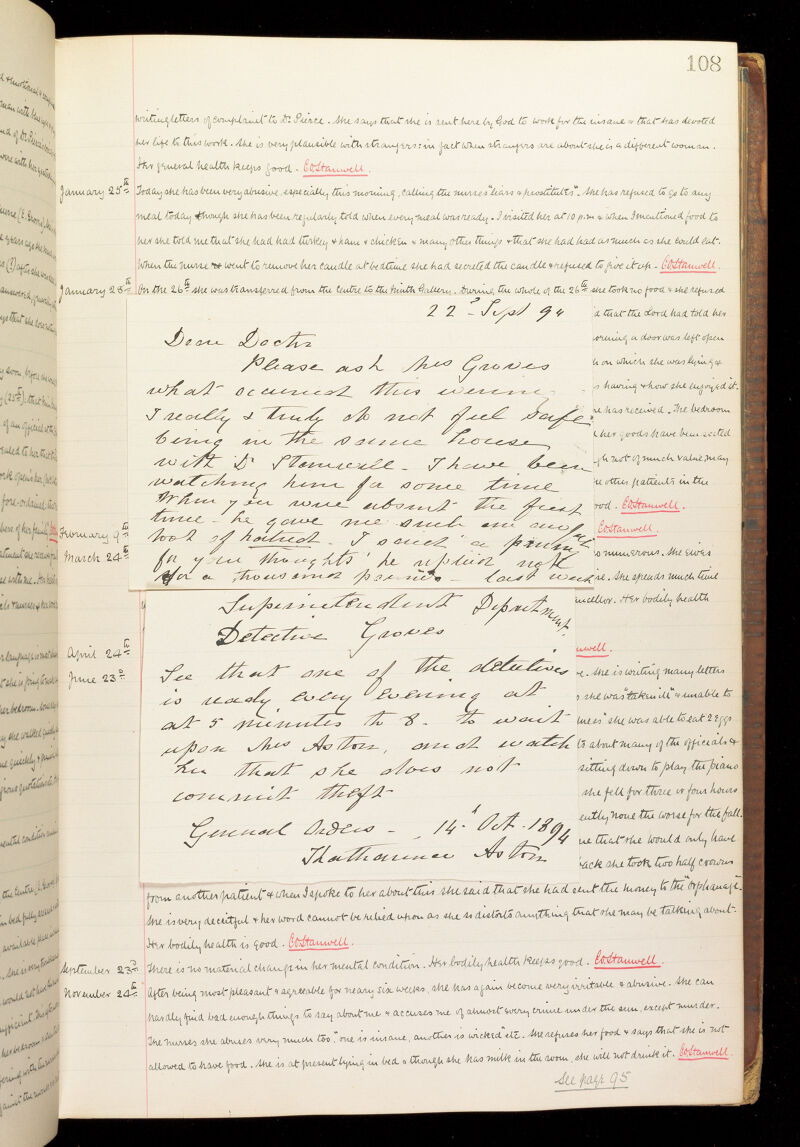 108
writing letters of complaint to Dr. Pierce. She says that she is sent here by God to work for the insane & that has devoted
her life to this work. She is very plausible with strangers: in fact when strangers are about she is a different woman.
Her general health keeps good. C.O. Stanwell.
January 25th Today she has been very abusive, especially this morning, calling the nurses "liars & prostitutes". She has refused to go to any
meal today though she has been regularly told when every meal was ready. I visited her at 10 p.m & when I mentioned food to
her she told me that she had had turkey & ham & chicken & many other things & that she had had as much as she could eat.
When the nurse went to remove her candle at bedtime she had secreted the candle & refused to give it up. C.O. Stanwell.
January 28th On the 26th she was transferred from the centre to the Ninth Gallery. During the whole of the 26th she took no food & she refused
22d Sept 94
Dear Doctor
Please ask Mrs Groves
what occurred this evening
I really & truly do not feel safe
being in the same house
with Dr Stanwell - I have been
watching him for some time
When you were absent the first
time - he gave me such an awful
look of hatred. I said 'a penny
for your thoughts' he replied not
for a thousand pennies - last week
d that the Lord had told her
orning a door was left open
h on which she was lying &
s having & how she enjoyed it.
he has received. The bedroom
her goods have been sorted
gh not of much value may
e other patients in the
ood. C.O. Stanwell.
February 9th C.O. Stanwell.
March 24th so numerous. She gives
se. She spends much time
ancellor. Her bodily health
Superintendent Department.
Detective Groves
See that one of the detectives
is ready every evening at
at 5 minutes to 8 - to wait
upon Mrs Aston, and watch
her that she does not
commit theft
General Orders - 14th Oct. 1894
Katharine Aston
April 24th nwell.
June 23d e. She is writing many letters
she was "taken ill" & unable to
mess" she was able to eat 2 eggs
ts about many of the officials &
sitting down to play the piano
she fell for three or four hours
ently none the worse for the fall.
me that she would only have
ack she took two half crowns
from another patient & when I spoke to her about this she said that she had sent the money to the "orphanage".
She is very deceitful & her word cannot be relied upon as she so distorts anything that she may be talking about.
Her bodily health is good. C.O. Stanwell.
September 23d There is no material change in her mental condition. Her bodily health keeps good. C.O. Stanwell.
November 24th After being most pleasant & agreeable for nearly six weeks, she has again become very irritable & abusive. She can
hardly find bad enough things to say about me & accuses me of almost every crime under the sun, except murder.
The nurses she abuses very much too, "one is insane, another is wicked" etc. She refuses her food & says that she is not
allowed to have food. She is at present lying in bed & though she has milk in the room, she will not drink it. C.O. Stanwell.
See page 95